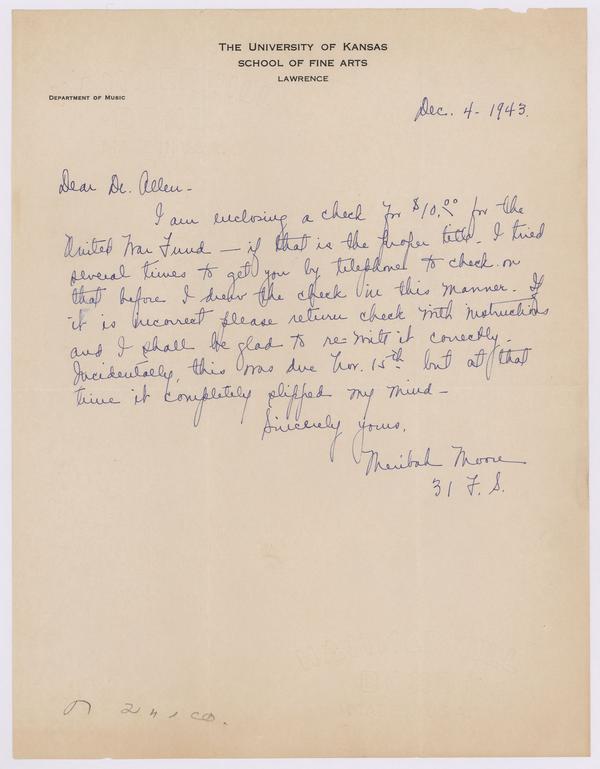 THE UNIVERSITY OF KANSAS
SCHOOL OF FINE ARTS
LAWRENCE
DEPARTMENT OF MUSIC
Dec. 4 - 1943.
Dear Dr. Allen -
I am enclosing a check for $10.00 for the
United War Fund — if that is the proper title. I tried
several times to get you by telephone to check on
that before I drew the check in this manner. If
it is incorrect please return check with instructions
and I shall be glad to re-write it correctly.
Incidentally, this was due Nov. 15th but at that
time it completely slipped my mind —
Sincerely yours,
Meribah Moore
31 F. S.